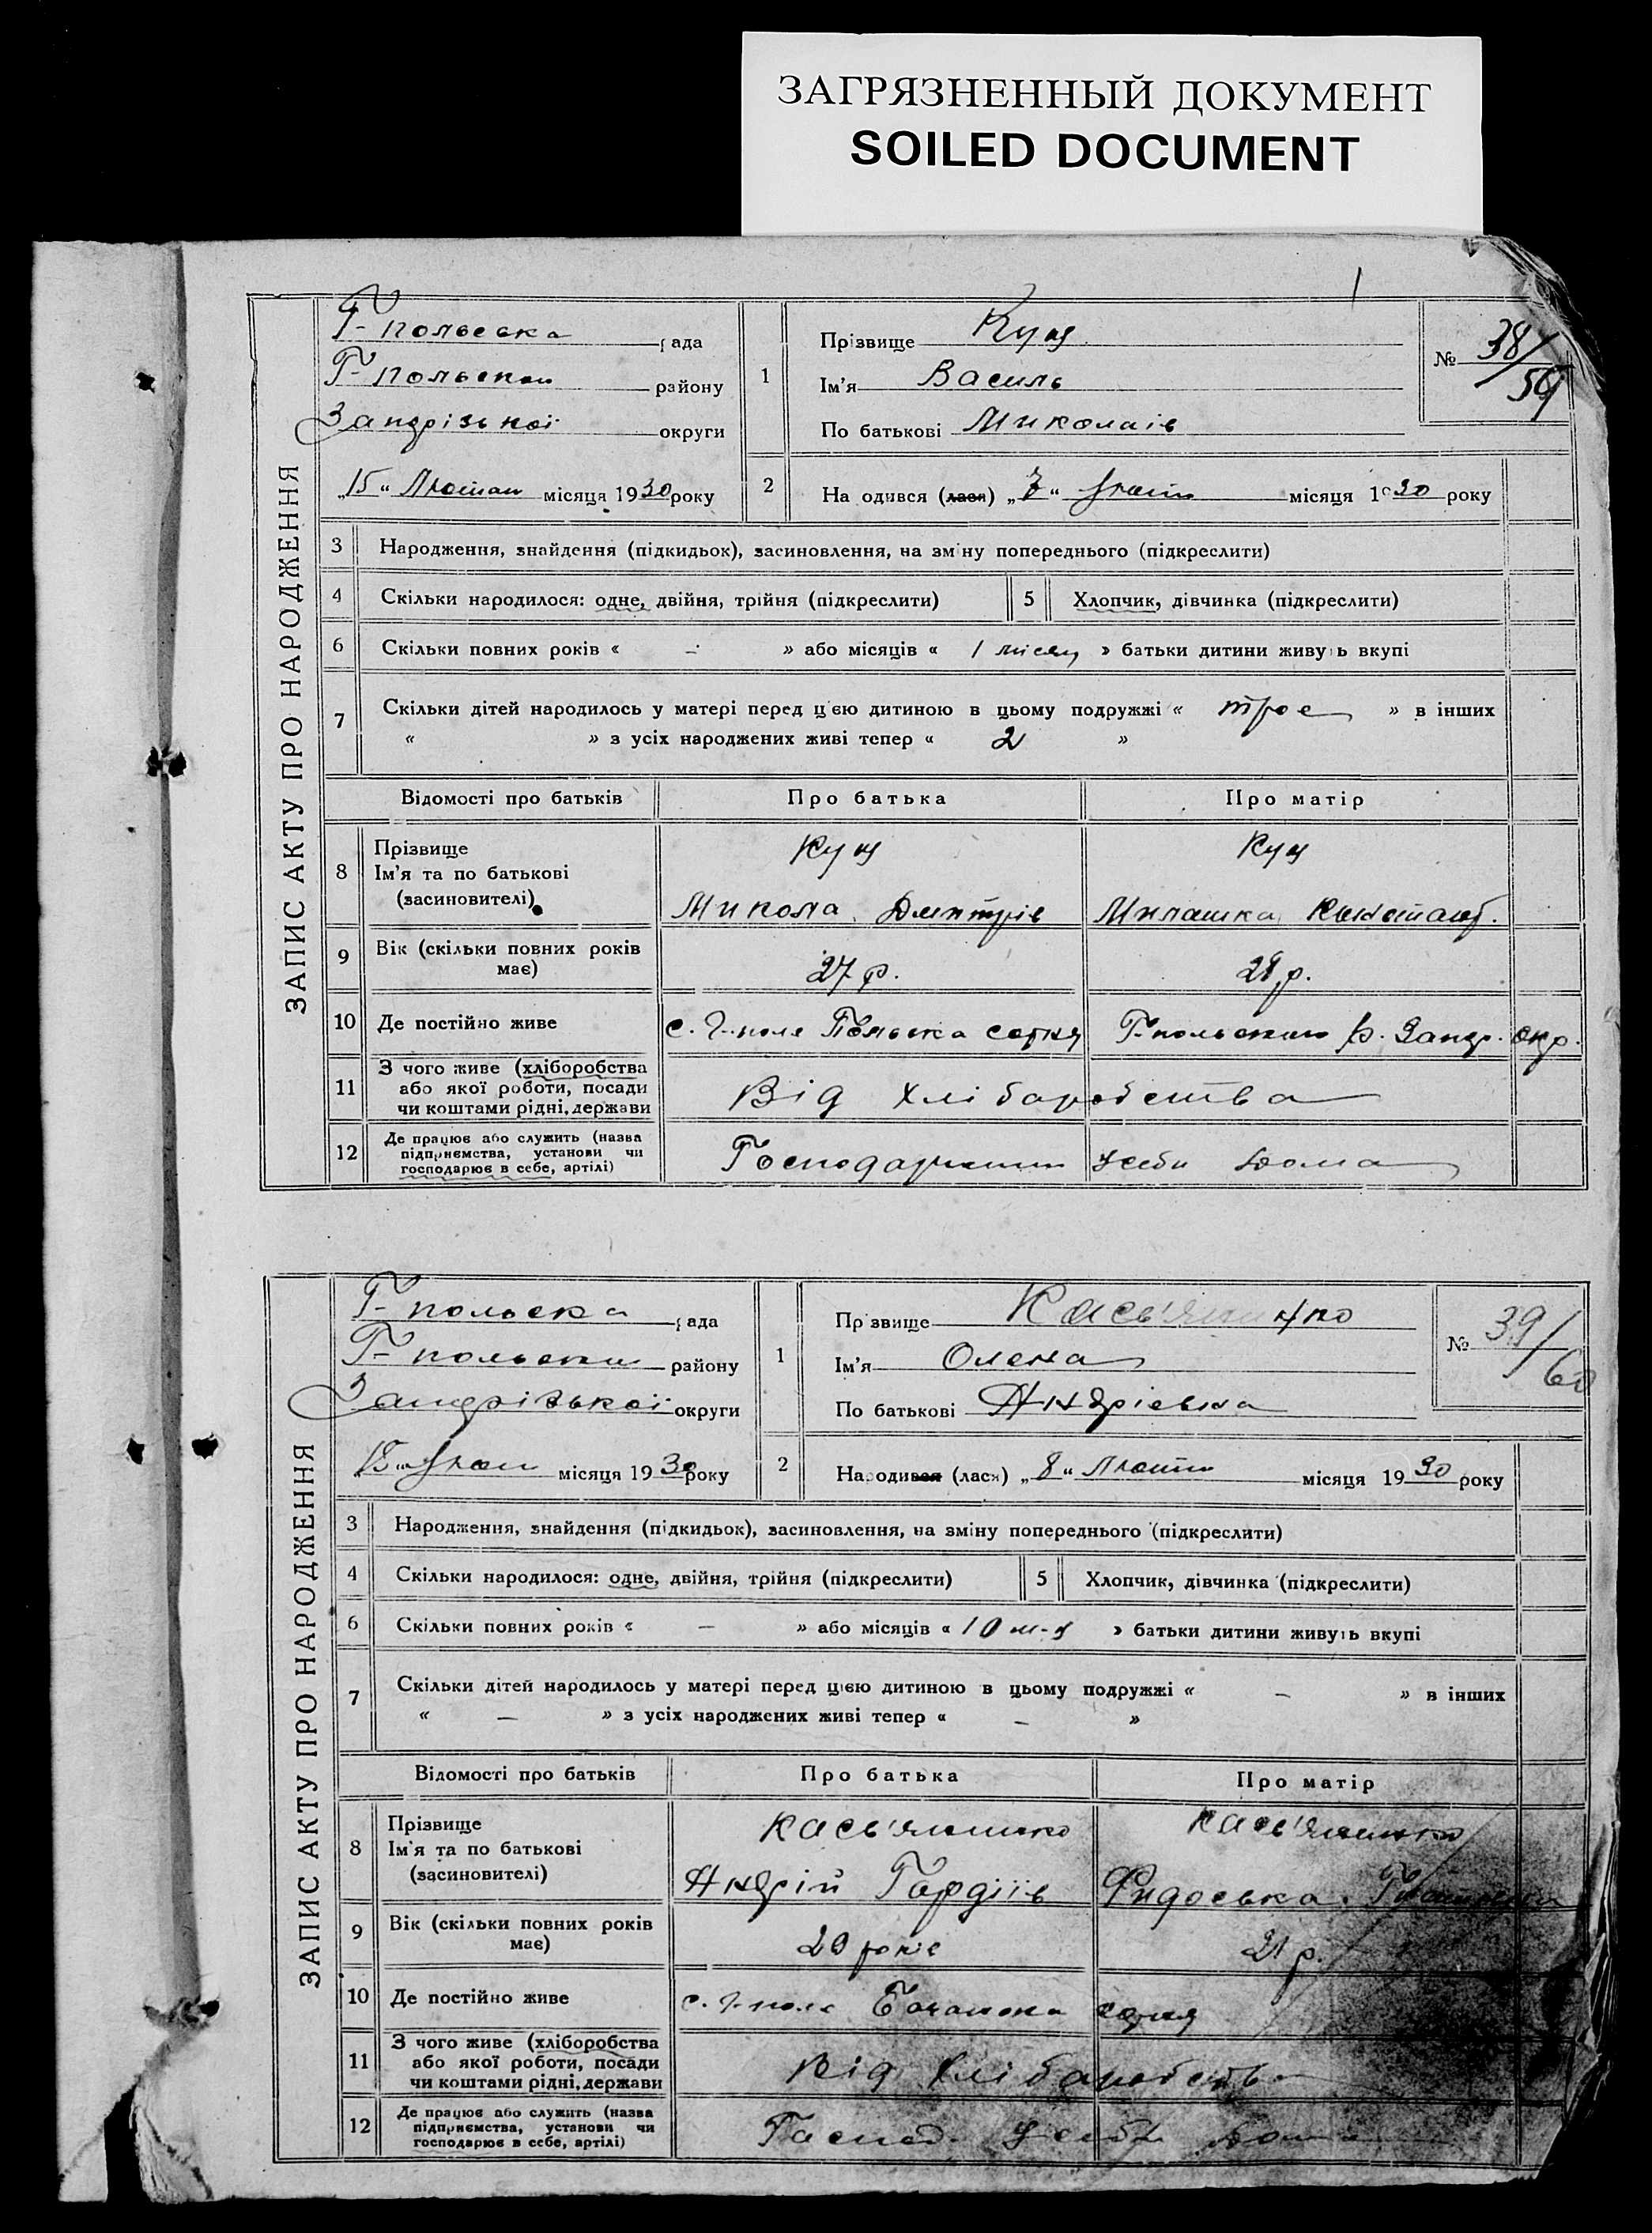 ЗАГРЯЗНЕННЫЙ ДОКУМЕНТ
SOILED DOCUMENT
1
ЗАПИС АКТУ ПРО НАРОДЖЕННЯ
Г-польська рада
Г-польськ району
Запорізької округи
„15“ Лютого місяця 1930 року
1
Прізвище Куц
Ім'я Василь
По батькові Миколаів
№ 38/59
2
На одився (лася) „7“ лютого місяця 1930 року
3 Народження, знайдення (підкидьок), засиновлення, на зміну попереднього (підкреслити)
4 Скільки народилося: одне, двійня, трійня (підкреслити)
5 Хлопчик, дівчинка (підкреслити)
6 Скільки повних років « - » або місяців « 1 місяц » батьки дитини живуть вкупі
7 Скільки дітей народилось у матері перед цією дитиною в цьому подружжі « троє » в інших
« » з усіх народжених живі тепер « 2 »
Відомості про батьків Про батька Про матір
8 Прізвище
Ім'я та по батькові
(засиновителі)
Куц
Микола Дмитрів
Куц
9 Вік (скільки повних років
має)
27 р.
28 р.
10 Де постійно живе с. Г-поле Польська сотня Г-польського р. Запор. окр.
11 З чого живе (хліборобства
або якої роботи, посади
чи коштами рідні, держави
Від хліборобства
12 Де працює або служить (назва
підприємства, установи чи
господарює в себе, артілі)
у себи дома
ЗАПИС АКТУ ПРО НАРОДЖЕННЯ
Г-польська рада
Г-польськ району
Запорізької округи
„15“ лютого місяця 1930 року
1
Пр звище Кась'яненко
Ім'я Олена
По батькові Андріевна
№ 39/60
2
Народився (лася) „8“ Лютого місяця 1930 року
3 Народження, знайдення (підкидьок), засиновлення, на зміну попереднього (підкреслити)
4 Скільки народилося: одне, двійня, трійня (підкреслити)
5 Хлопчик, дівчинка (підкреслити)
6 Скільки повних років « - » або місяців « 10 м-ц » батьки дитини живуть вкупі
7 Скільки дітей народилось у матері перед цією дитиною в цьому подружжі « - » в інших
« - » з усіх народжених живі тепер « - »
Відомості про батьків Про батька Про матір
8 Прізвище
Ім'я та по батькові
(засиновителі)
Кась'яненко
Андрій Гордіїв
Кась'яненко
Фидоська
9 Вік (скільки повних років
має)
20 років
21 р.
10 Де постійно живе с. Г-поле сотня
11 З чого живе (хліборобства
або якої роботи, посади
чи коштами рідні, держави
Від хліборобства
12 Де працює або служить (назва
підприємства, установи чи
господарює в себе, артілі)
Господ. у себи дома